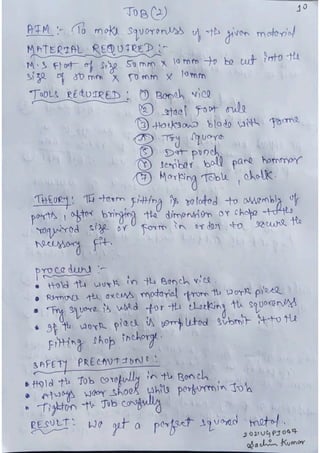 JOB (2)
10
AIM :- To make squareness of the given material
MATERIAL REQUIRED :-
M.S Flat of size 50mm x 10mm to be cut into the
size of 50mm x 50mm x 10mm
TOOLS REQUIRED : ① Bench vice
② Steel Foot rule
③ Hacksaw blade with Frame
④ Try square
⑤ Dot punch
⑥ scriber ball pane hammer
⑦ Marking Table, chalk.
THEORY: The term fitting is related to assembly of
parts, after bringing the dimension or shape to the
required size or form in order to secure the
necessary fit.
procedure :-
• Hold the work in the Bench vice
• Remove the excess material from the work piece
• Try square is used for the checking the squareness
• If the work piece is completed submit it to the
fitting shop incharge.
SAFETY PRECAUTIONS :
• Hold the Job carefully in the Bench
• Always wear shoes while performin Job
• Tighten the Job carefully
RESULT: We get a perfect squared metal.
2021UGPI044
Sachin Kumar